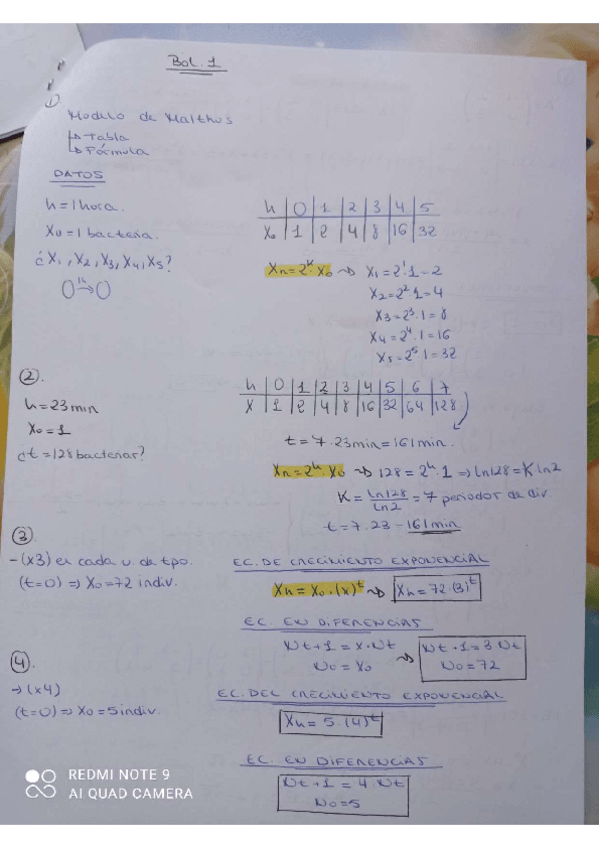 Bol. 1
①
Modelo de Malthus
↳ Tabla
↳ Fórmula
DATOS
h = 1 hora.
X₀ = 1 bacteria.
¿X₁, X₂, X₃, X₄, X₅?
h | 0 | 1 | 2 | 3 | 4 | 5
X₀ | 1 | 2 | 4 | 8 | 16 | 32
Xn = 2^k · X₀ → X₁ = 2¹·1 = 2
X₂ = 2²·1 = 4
X₃ = 2³·1 = 8
X₄ = 2⁴·1 = 16
X₅ = 2⁵·1 = 32
②.
h = 23 min
X₀ = 1
¿t = 128 bacterias?
h | 0 | 1 | 2 | 3 | 4 | 5 | 6 | 7
X | 1 | 2 | 4 | 8 | 16 | 32 | 64 | 128
t = 7·23min = 161 min.
Xn = 2^k · X₀ → 128 = 2^k · 1 ⇒ ln128 = K ln2
K = ln128 / ln2 = 7 periodos de div
t = 7·23 = 161 min
③
- (x3) es cada u. de tpo.
(t=0) ⇒ X₀ = 72 indiv.
EC. DE CRECIMIENTO EXPONENCIAL
Xn = X₀ · (x)^t → Xn = 72 (3)^t
EC. EN DIFERENCIAS
Nt+1 = x·Nt → Nt+1 = 3 Nt
N₀ = X₀ N₀ = 72
④.
→ (x4)
(t=0) ⇒ X₀ = 5 indiv.
EC. DEL CRECIMIENTO EXPONENCIAL
Xn = 5·(4)^t
EC. EN DIFERENCIAS
Nt+1 = 4 Nt
N₀ = 5
REDMI NOTE 9
AI QUAD CAMERA